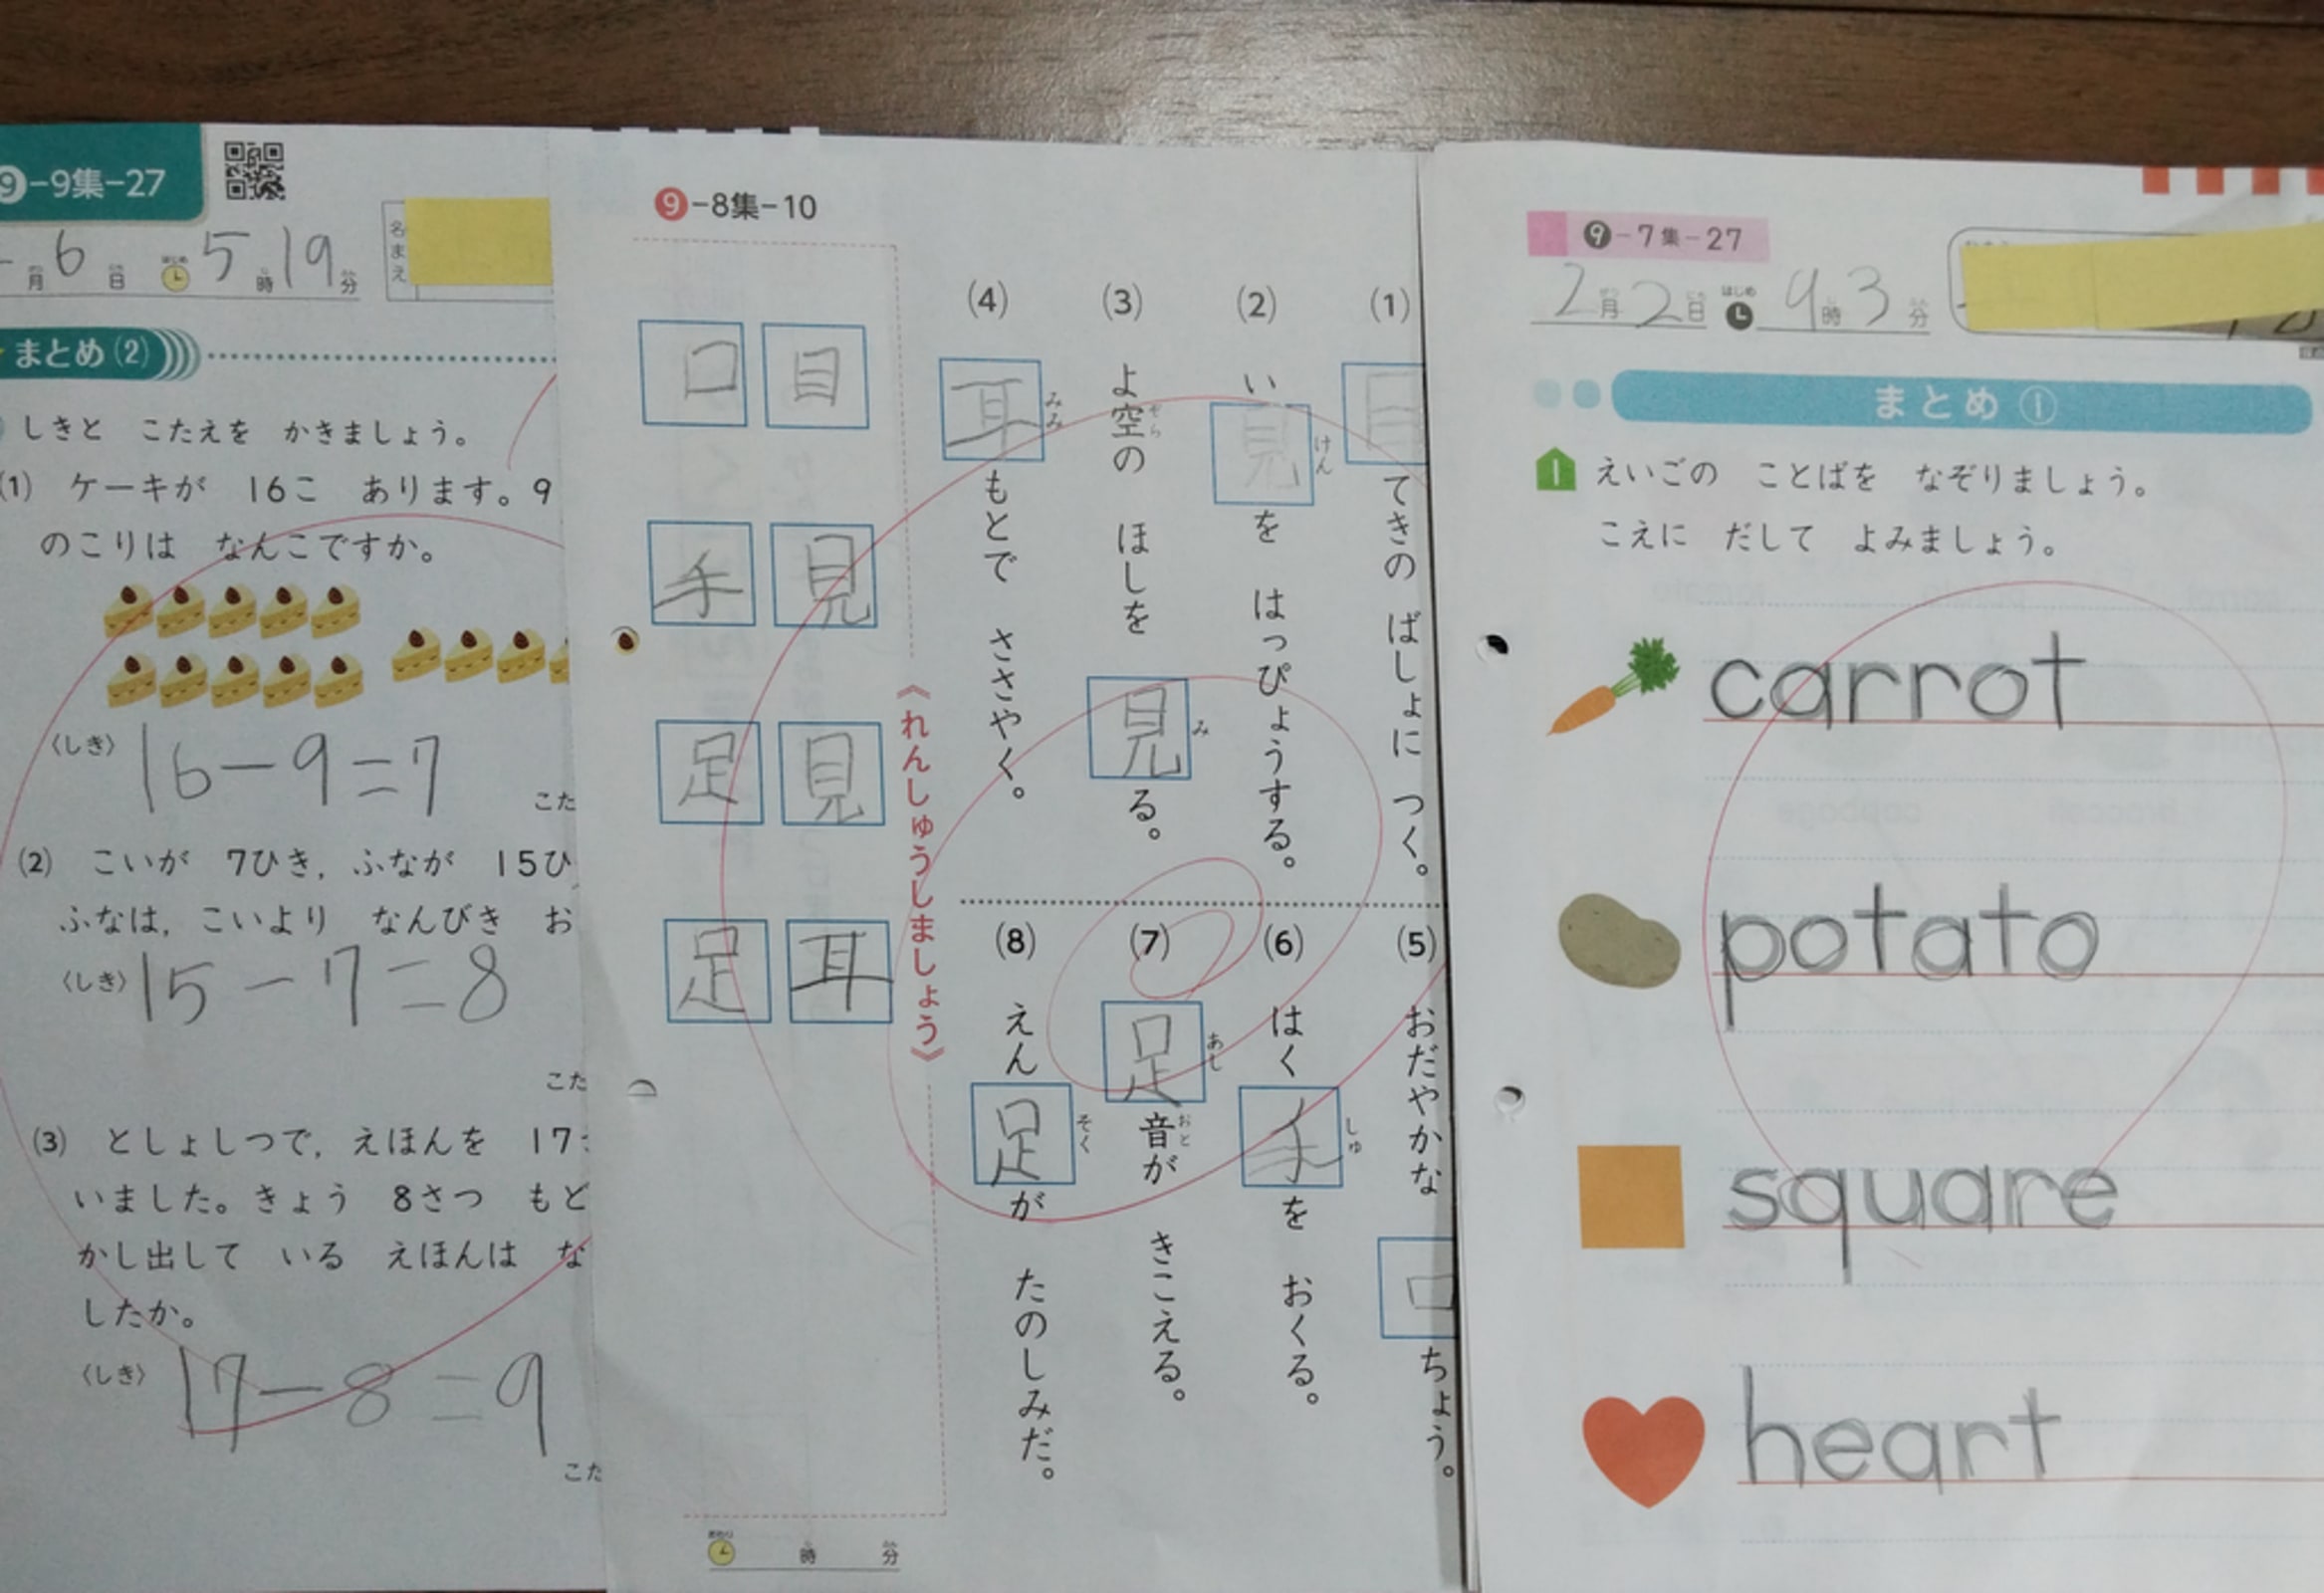 9-9集-27
月6日 はじめ 5時19分
名まえ
まとめ(2)
しきと こたえを かきましょう。
(1) ケーキが 16こ あります。9
のこりは なんこですか。
〈しき〉 16-9=7
こた
(2) こいが 7ひき, ふなが 15ひ
ふなは, こいより なんびき お
〈しき〉 15-7=8
こた
(3) としょしつで, えほんを 17
いました。きょう 8さつ もど
かし出して いる えほんは な
したか。
〈しき〉 17-8=9
こた
9-8集-10
(1) 目てきの ばしょに つく。
(2) い見けんを はっぴょうする。
(3) よ空そらの ほしを 見みる。
(4) 耳みみもとで ささやく。
(5) おだやかな 口ちょう。
(6) はく手しゅを おくる。
(7) 足あし音おとが きこえる。
(8) えん足そくが たのしみだ。
《れんしゅうしましょう》
目 見 見 耳
口 手 足 足
おわり 時 分
9-7集-27
2月2日 はじめ 9時3分
まとめ①
1 えいごの ことばを なぞりましょう。
こえに だして よみましょう。
carrot
potato
square
heart